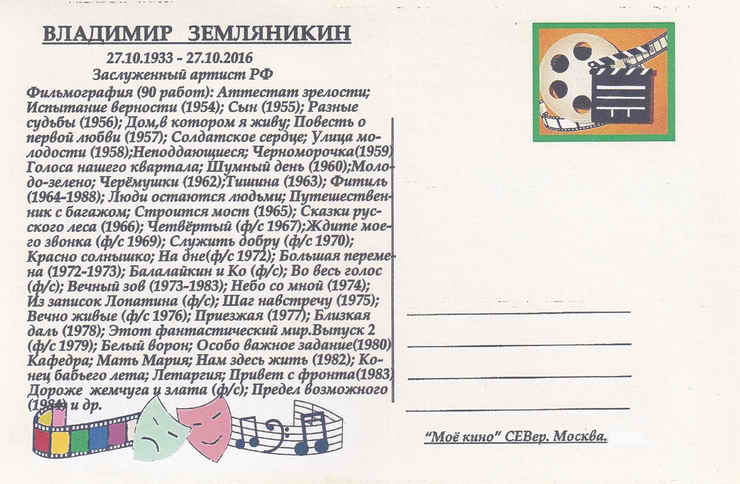 ВЛАДИМИР ЗЕМЛЯНИКИН
27.10.1933 - 27.10.2016
Заслуженный артист РФ
Фильмография (90 работ): Аттестат зрелости;
Испытание верности (1954); Сын (1955); Разные
судьбы (1956); Дом,в котором я живу; Повесть о
первой любви (1957); Солдатское сердце; Улица мо-
лодости (1958);Неподдающиеся; Черноморочка(1959)
Голоса нашего квартала; Шумный день (1960);Моло-
до-зелено; Черёмушки (1962);Тишина (1963); Фитиль
(1964-1988); Люди остаются людьми; Путешествен-
ник с багажом; Строится мост (1965); Сказки рус-
ского леса (1966); Четвёртый (ф/с 1967);Ждите мое-
го звонка (ф/с 1969); Служить добру (ф/с 1970);
Красно солнышко; На дне(ф/с 1972); Большая переме-
на (1972-1973); Балалайкин и Ко (ф/с); Во весь голос
(ф/с); Вечный зов (1973-1983); Небо со мной (1974);
Из записок Лопатина (ф/с); Шаг навстречу (1975);
Вечно живые (ф/с 1976); Приезжая (1977); Близкая
даль (1978); Этот фантастический мир.Выпуск 2
(ф/с 1979); Белый ворон; Особо важное задание(1980)
Кафедра; Мать Мария; Нам здесь жить (1982); Ко-
нец бабьего лета; Летаргия; Привет с фронта(1983)
Дороже жемчуга и злата (ф/с); Предел возможного
(1984) и др.
"Моё кино" СЕВер. Москва.